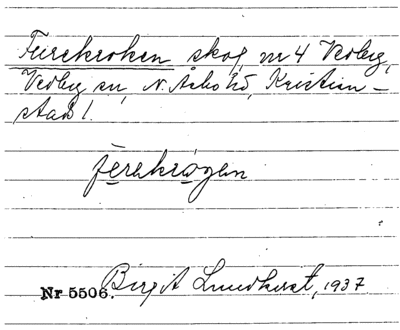 Furekroken skog, nr 4 Vedby,
Vedby sn, N. Åsbo hd, Kristian-
stad l.
ferekrogen
Nr 5506. Birgit Lundkvist, 1937